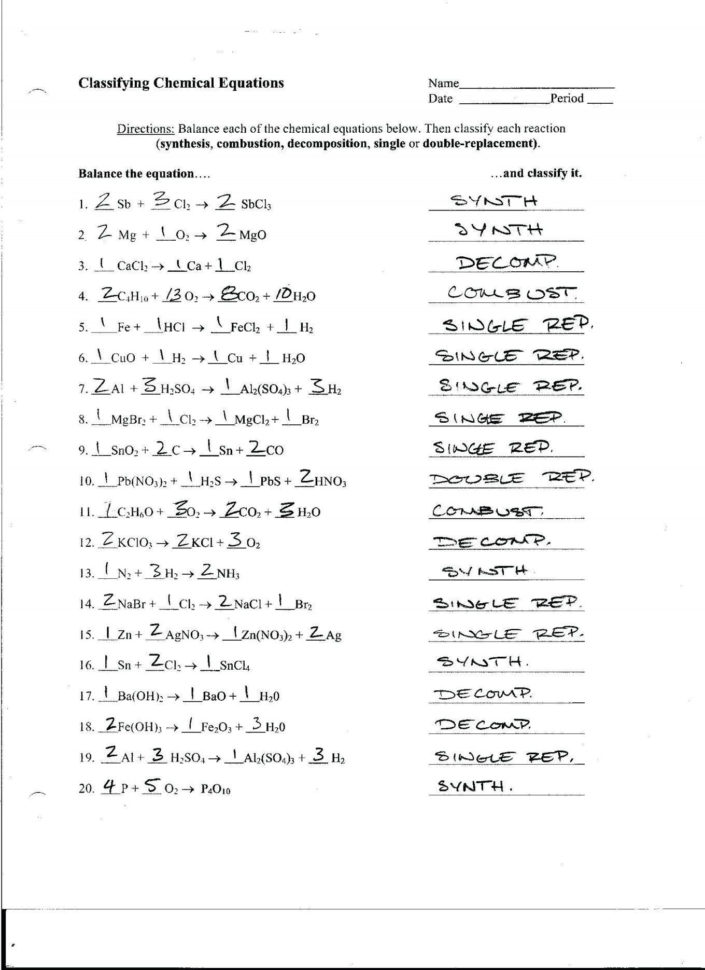 Classifying Chemical Equations Name
Date Period
Directions: Balance each of the chemical equations below. Then classify each reaction
(synthesis, combustion, decomposition, single or double-replacement).
Balance the equation…. …and classify it.
1. 2 Sb + 3 Cl₂ → 2 SbCl₃ SYNTH
2 2 Mg + 1 O₂ → 2 MgO SYNTH
3. 1 CaCl₂ → 1 Ca + 1 Cl₂ DECOMP.
4. 2 C₄H₁₀ + 13 O₂ → 8 CO₂ + 10 H₂O COMBUST.
5. 1 Fe + 1 HCl → 1 FeCl₂ + 1 H₂ SINGLE REP.
6. 1 CuO + 1 H₂ → 1 Cu + 1 H₂O SINGLE REP.
7. 2 Al + 3 H₂SO₄ → 1 Al₂(SO₄)₃ + 3 H₂ SINGLE REP.
8. 1 MgBr₂ + 1 Cl₂ → 1 MgCl₂ + 1 Br₂ SINGE REP.
9. 1 SnO₂ + 2 C → 1 Sn + 2 CO SINGE REP.
10. 1 Pb(NO₃)₂ + 1 H₂S → 1 PbS + 2 HNO₃ DOUBLE REP.
11. 1 C₂H₆O + 3 O₂ → 2 CO₂ + 3 H₂O COMBUST.
12. 2 KClO₃ → 2 KCl + 3 O₂ DECOMP.
13. 1 N₂ + 3 H₂ → 2 NH₃ SYNTH.
14. 2 NaBr + 1 Cl₂ → 2 NaCl + 1 Br₂ SINGLE REP.
15. 1 Zn + 2 AgNO₃ → 1 Zn(NO₃)₂ + 2 Ag SINGLE REP.
16. 1 Sn + 2 Cl₂ → 1 SnCl₄ SYNTH.
17. 1 Ba(OH)₂ → 1 BaO + 1 H₂0 DECOMP.
18. 2 Fe(OH)₃ → 1 Fe₂O₃ + 3 H₂0 DECOMP.
19. 2 Al + 3 H₂SO₄ → 1 Al₂(SO₄)₃ + 3 H₂ SINGLE REP.
20. 4 P + 5 O₂ → P₄O₁₀ SYNTH.